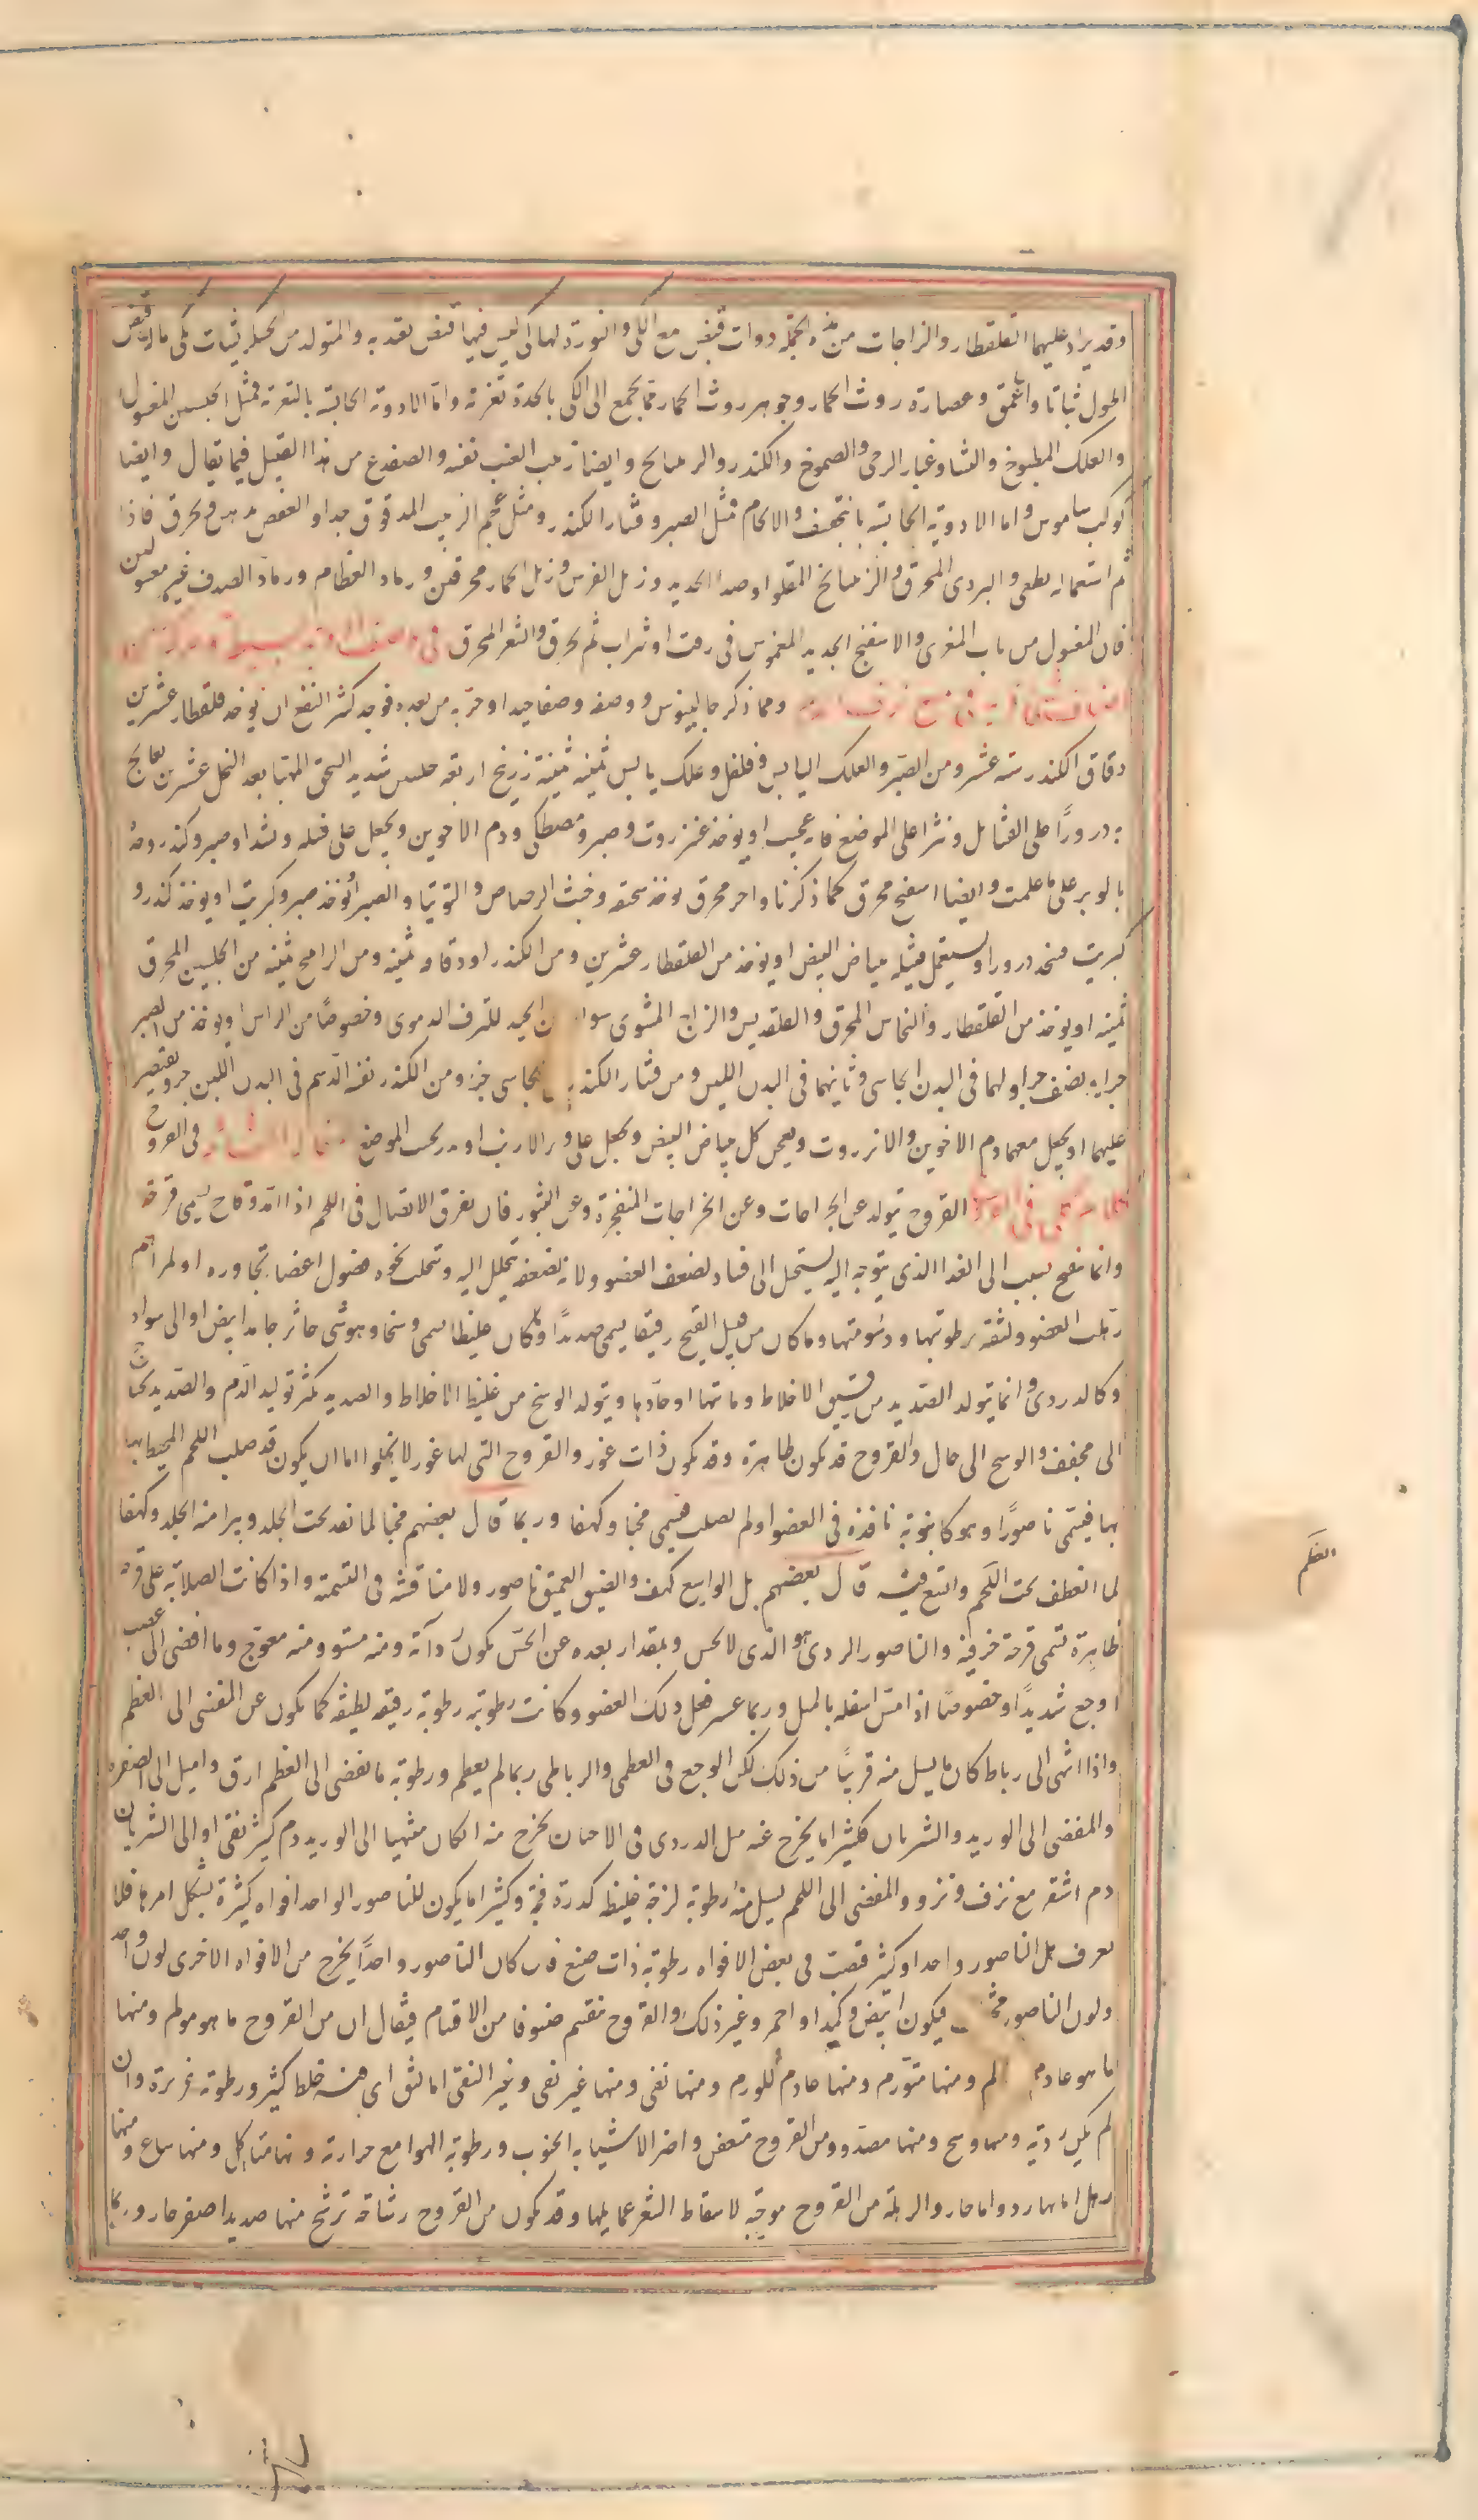 وقد يزاد عليهما القلقطار والزاجات من هذه الجملة ذوات قبض مع الكي والنورة لها كي ليس فيها قبض يعتد به والمتولد من الخشكريشات بكي ماله قبض
اطول ثباتا واعمق وعصارة روث الحمار وجوهر روث الحمار مما يجمع الى الكي بالحدة تغرية واما الادوية الحابسة بالتغرية فمثل الجبسين المغسول
والعلك المطبوخ والنشا وغبار الرحى والصموغ والكندر والريتيانج وايضا زبيب العنب نفسه والضفدع من هذا القبيل فيما يقال وايضا
كوكب ساموس واما الادوية الحابسة بالتجفيف والالحام فمثل الصبر وقشار الكندر ومثل عجم الزبيب المدقوق جدا والعفص يدهن ويحرق فاذا
تم اشتعاله يطفى والبردي المحرق والريتيانج المقلو وصدا الحديد وزبل الفرس وزبل الحمار محرقين ورماد العظام ورماد الصدف غير مغسولين
فان المغسول من باب المغري والاسفنج الجديد المغموس في زفت او شراب ثم يحرق والشعر المحرق
ومما ذكر جالينوس ووصفه وصفا جيدا وجربه من بعده فوجد كثير النفع ان يؤخذ قلقطار عشرين
دقاق الكندر ستة عشر ومن الصبر والعلك اليابس وفلفل وعلك يابس ثمنية ثمنية زرنيخ اربعة جبسين شديد السحق المهيا بعد النخل عشرين يعالج
به ذرورا على الفتائل ونثرا على الموضع فانه عجيب او يؤخذ عنزروت وصبر ومصطكى ودم الاخوين ويجعل على فتيلة ويشد او صبر وكندر ودم
بالوبر على ما علمت وايضا اسفنج محرق كما ذكرنا واجر محرق يؤخذ سحقه وخبث الرصاص والتوتيا والصبر او يؤخذ صبر وكبريت او يؤخذ كندر و
كبريت فيتخذ ذرورا ويستعمل فتيلة ببياض البيض او يؤخذ من القلقطار عشرين ومن الكندر او دقاقه ثمنية ومن الراتينج ثمنية من الجبسين المحرق
ثمنية او يؤخذ من القلقطار والنحاس المحرق والقلقديس والزاج المشوى سوا الجيد للنزف الدموى وخصوصا من الراس او يؤخذ من الصبر
جزا ونصف جزا ولهما في البدن الجاسى وثانيهما في البدن اللين ومن قشار الكندر الجاسى جز ومن الكندر نفسه الدسم في البدن اللين جز ويقتصر
عليهما او يجعل معهما دم الاخوين والانزروت ويعجن كل ببياض البيض ويجعل على وبر الارنب او يدر بحسب الموضع في القروح
القروح تتولد عن الجراحات وعن الخراجات المنفجرة وعن البثور فان تفرق الاتصال في اللحم اذا امتد وقاح يسمى قرحة
وانما تقيح بسبب الى الغذا الذي يتوجه اليه يستحيل الى فساد لضعف العضو ولانه لضعفه يتحلل اليه ويتحلب نحوه فضول اعضا تجاوره او لمراهم
رهلت العضو ولثقته برطوبتها ودسومتها وما كان من قبيل القيح رقيقا يسمى صديدا وما كان غليظا يسمى وسخا وهو شى خاثر جامد ابيض او الى سواد
وكالدردى وانما يتولد الصديد من رقيق الاخلاط وماتها او حادها ويتولد الوسخ من غليظ الاخلاط والصديد يكثر توليد الدم والصديد يحتاج
الى مجفف والوسخ الى جال والقروح قد يكون ظاهرة وقد يكون ذات غور والقروح التي لها غور لا يخلو اما ان يكون قد صلب اللحم المحيط بها
بها فيسمى ناصورا وهو كانبوبة نافذة في العضو او لم يصلب فيسمى مخبا وكهفا وربما قال بعضهم مخبا لما نفذ تحت الجلد ويبرا منه الجلد وكهفا
لما انعطف تحت اللحم واتسع فيه قال بعضهم بل الواسع كهف والضيق العميق ناصور ولا مناقشة في التسمية واذا كانت الصلابة على قرحة
ظاهرة تسمى قرحة خزفية والناصور الردى هو الذى لا يحس وبمقدار بعده عن الحس يكون رداءة ومنه مستو ومنه معوج وما افضى الى عصب
اوجع شديدا وخصوصا اذا مس اسفله بالميل وربما عسر فعل ذلك العضو وكانت رطوبته رطوبة رقيقة لطيفة كما يكون عن المفضى الى العظم
واذا انتهى الى رباط كان ما يسيل منه قريبا من ذلك لكن الوجع في العظمى والرباطى ربما لم يعظم ورطوبة ما يفضى الى العظم ارق واميل الى الصفرة
والمفضى الى الوريد والشريان فكثيرا ما يخرج عنه مثل الدردى وفى الاحيان يخرج منه ان كان منتهيا الى الوريد دم كثير نقى او الى الشريان
دم اشقر مع نزف ونزو والمفضى الى اللحم يسيل منه رطوبة لزجة غليظة كدرة فجة وكثيرا ما يكون للناصور الواحد افواه كثيرة يشكل امرها فلا
يعرف هل الناصور واحد او كثير فصب في بعض الافواه رطوبة ذات صبغ فان كان الناصور واحدا يخرج من الافواه الاخرى لون واحد
ولون الناصور فيكون ابيض وكميدا واحمر وغير ذلك والقروح تنقسم صنوفا من الاقسام فيقال ان من القروح ما هو مولم ومنها
ما هو عادم الم ومنها متورم ومنها عادم للورم ومنها نقى ومنها غير نقى وغير النقى اما لثق اى فيه خلط كثير ورطوبة غزيرة وان
لم يكن ردية ومنها وسخ ومنها مصدد ومن القروح متعفن واضر الاشيا به الجنوب ورطوبة الهوا مع حرارته ومنها متاكل ومنها ساع ومنها
رهل اما بارد واما حار والرهلة من القروح موجبة لاسقاط الشعر عما يليها وقد يكون من القروح رشاحة ترشح منها صديدا اصفر حار وربما
العظم